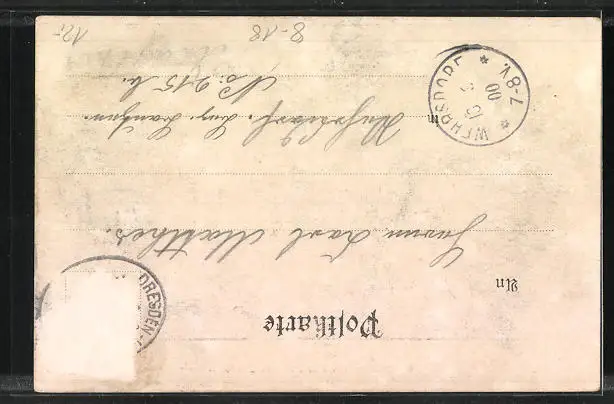 Postkarte
An
Herrn Karl Matthes.
in Wehrsdorf. 
No 215 b.
DRESDEN
WEHRSDORF * 7-8 V. *
00
8-18
12.-